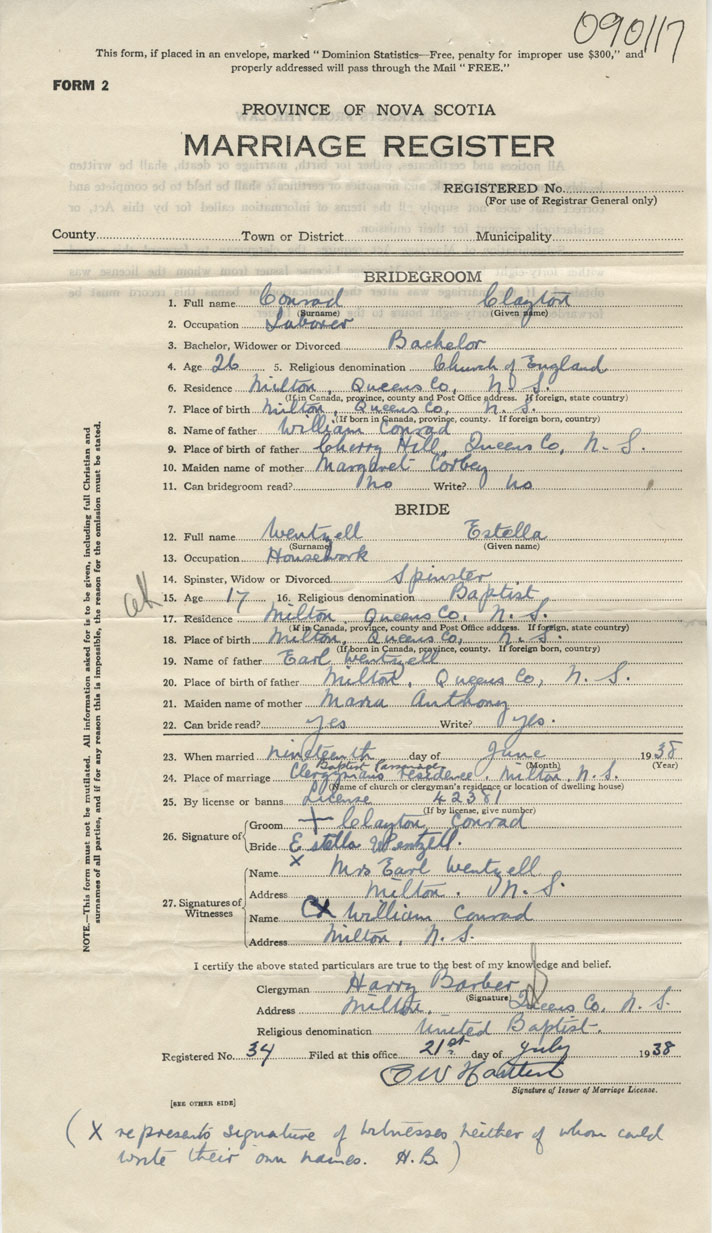 090117
This form, if placed in an envelope, marked "Dominion Statistics—Free, penalty for improper use $300," and
properly addressed will pass through the Mail "FREE."
FORM 2
PROVINCE OF NOVA SCOTIA
MARRIAGE REGISTER
REGISTERED No.
(For use of Registrar General only)
County Town or District Municipality
BRIDEGROOM
1. Full name Conrad Clayton
(Surname) (Given name)
2. Occupation Laborer
3. Bachelor, Widower or Divorced Bachelor
4. Age 26 5. Religious denomination Church of England
6. Residence Milton, Queens Co, N. S.
(If in Canada, province, county and Post Office address. If foreign, state country)
7. Place of birth Milton, Queens Co, N. S.
(If born in Canada, province, county. If foreign born, country)
8. Name of father William Conrad
9. Place of birth of father Cherry Hill, Queens Co, N. S.
10. Maiden name of mother Margaret Corbey
11. Can bridegroom read? No Write? No
BRIDE
12. Full name Wentzell Estella
(Surname) (Given name)
13. Occupation Housework
14. Spinster, Widow or Divorced Spinster
15. Age 17 16. Religious denomination Baptist
17. Residence Milton, Queens Co, N. S.
(If in Canada, province, county and Post Office address. If foreign, state country)
18. Place of birth Milton, Queens Co, N. S.
(If born in Canada, province, county. If foreign born, country)
19. Name of father Earl Wentzell
20. Place of birth of father Milton, Queens Co, N. S.
21. Maiden name of mother Maria Anthony
22. Can bride read? yes Write? yes.
23. When married nineteenth day of June 1938
(Month) (Year)
Baptist Parsonage
24. Place of marriage Clergymans residence, Milton, N. S.
(Name of church or clergyman's residence or location of dwelling house)
25. By license or banns License 42381
(If by license, give number)
26. Signature of Groom + Clayton Conrad
Bride Estella Wentzell.
27. Signatures of Witnesses
Name X Mrs Earl Wentzell
Address Milton. N. S.
Name X William Conrad
Address Milton, N. S.
I certify the above stated particulars are true to the best of my knowledge and belief.
Clergyman Harry Barber
(Signature)
Address Milton, Queens Co, N. S.
Religious denomination United Baptist.
Registered No. 34 Filed at this office 21st day of July 1938
Signature of Issuer of Marriage License.
[SEE OTHER SIDE]
(X represents signature of witnesses neither of whom could
write their own names. H.B.)
NOTE.—This form must not be mutilated. All information asked for is to be given, including full Christian and
surnames of all parties, and if for any reason this is impossible, the reason for the omission must be stated.